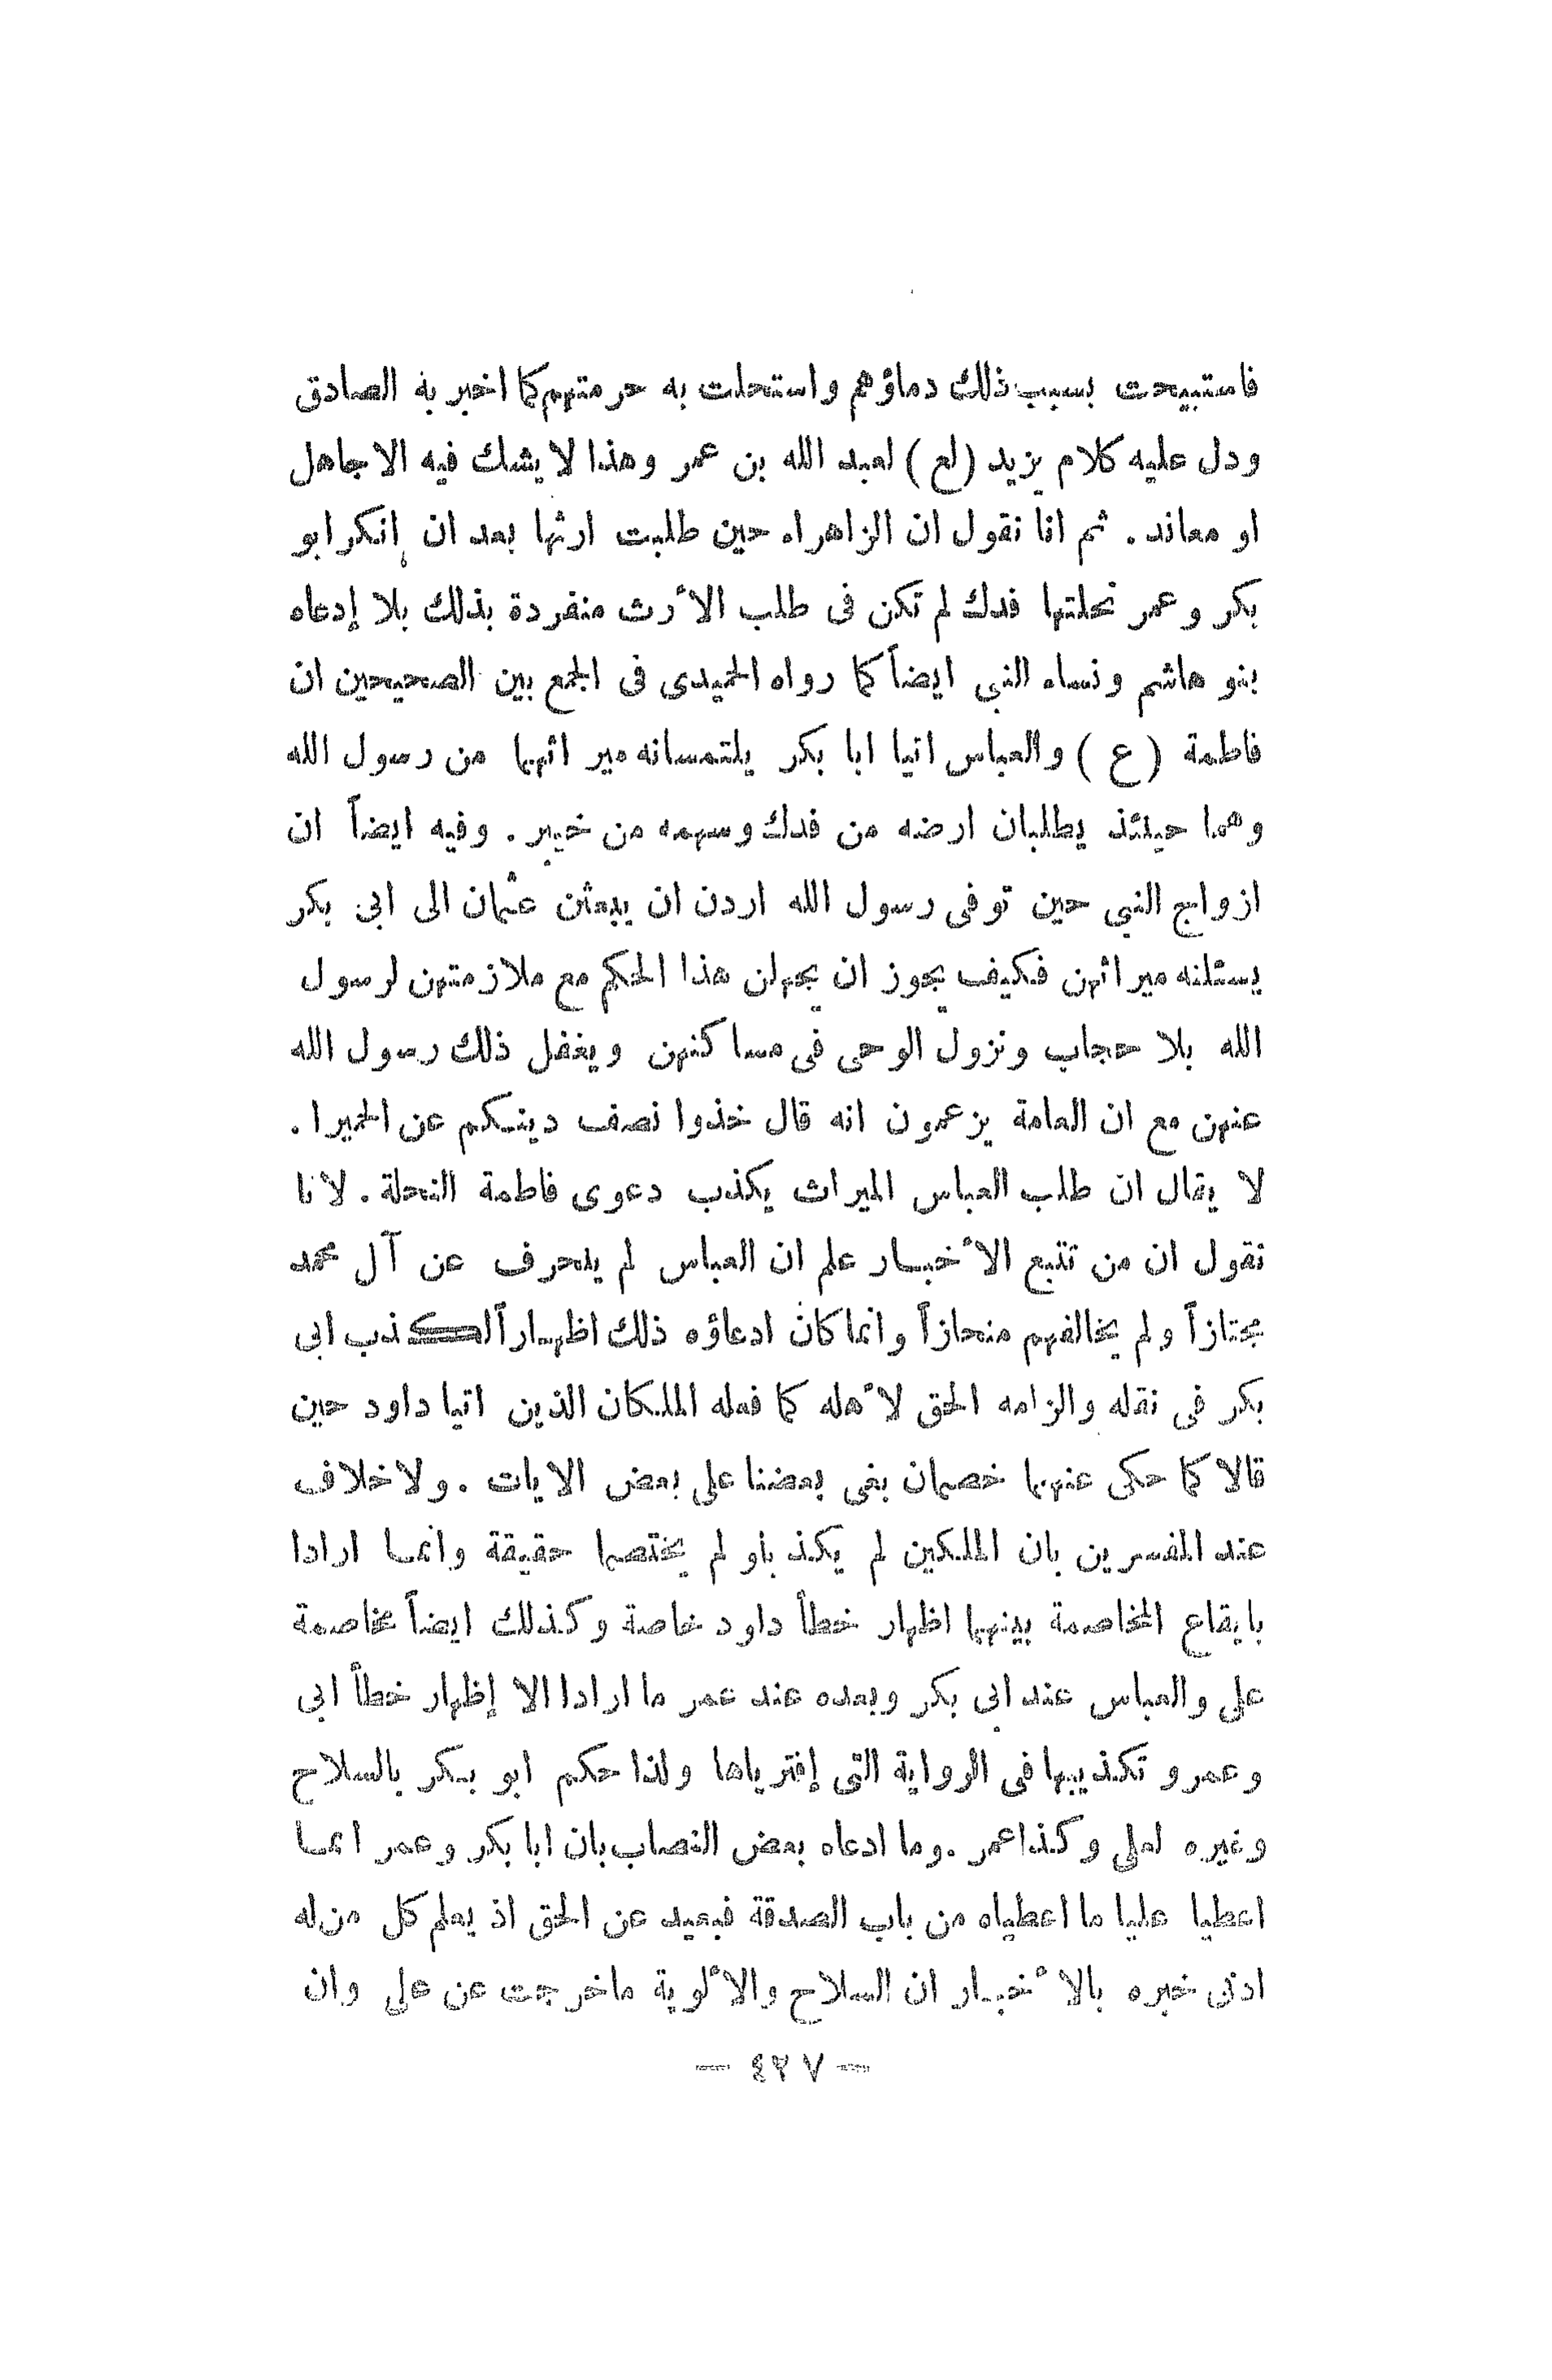 فاستبيحت بسبب ذلك دماؤهم واستحلت به حرمتهم كما اخبر به الصادق
ودل عليه كلام يزيد (لع) لعبد الله بن عمر وهذا لا يشك فيه الا جاهل
او معاند. ثم انا نقول ان الزاهراء حين طلبت ارثها بعد ان انكر ابو
بكر وعمر نحلتها فدك لم تكن فى طلب الأرث منفردة بذلك بلا إدعاه
بنو هاشم ونساء النبي ايضاً كما رواه الحميدى فى الجمع بين الصحيحين ان
فاطمة (ع) والعباس اتيا ابا بكر يلتمسانه ميراثهما من رسول الله
وهما حينئذ يطلبان ارضه من فدك وسهمه من خيبر. وفيه ايضاً ان
ازواج النبي حين توفى رسول الله اردن ان يبعثن عثمان الى ابى بكر
يسئلنه ميراثهن فكيف يجوز ان يجهلن هذا الحكم مع ملازمتهن لرسول
الله بلا حجاب ونزول الوحى فى مساكنهن ويغفل ذلك رسول الله
عنهن مع ان العامة يزعمون انه قال خذوا نصف دينكم عن الحميرا.
لا يقال ان طلب العباس الميراث يكذب دعوى فاطمة النحلة. لانا
نقول ان من تتبع الأخبار علم ان العباس لم ينحرف عن آل محمد
مجتازاً ولم يخالفهم منحازاً وانما كان ادعاؤه ذلك اظهاراً لكذب ابى
بكر فى نقله والزامه الحق لأهله كما فعله الملكان الذين اتيا داود حين
قالا كما حكى عنهما خصمان بغى بعضنا على بعض الايات. ولا خلاف
عند المفسرين بان الملكين لم يكذباو لم يختصما حقيقة وانما ارادا
بايقاع المخاصمة بينهما اظهار خطأ داود خاصة وكذلك ايضاً مخاصمة
على والعباس عند ابى بكر وبعده عند عمر ما ارادا الا إظهار خطأ ابى
وعمر و تكذيبها فى الرواية التى إفترياها ولذا حكم ابو بكر بالسلاح
وغيره لعلى وكذا عمر. وما ادعاه بعض النصاب بان ابا بكر وعمر انما
اعطيا عليا ما اعطياه من باب الصدقة فبعيد عن الحق اذ يعلم كل من له
ادنى خبره بالأخبار ان السلاح والألوية ماخرجت عن على وان
— ٤٢٧ —